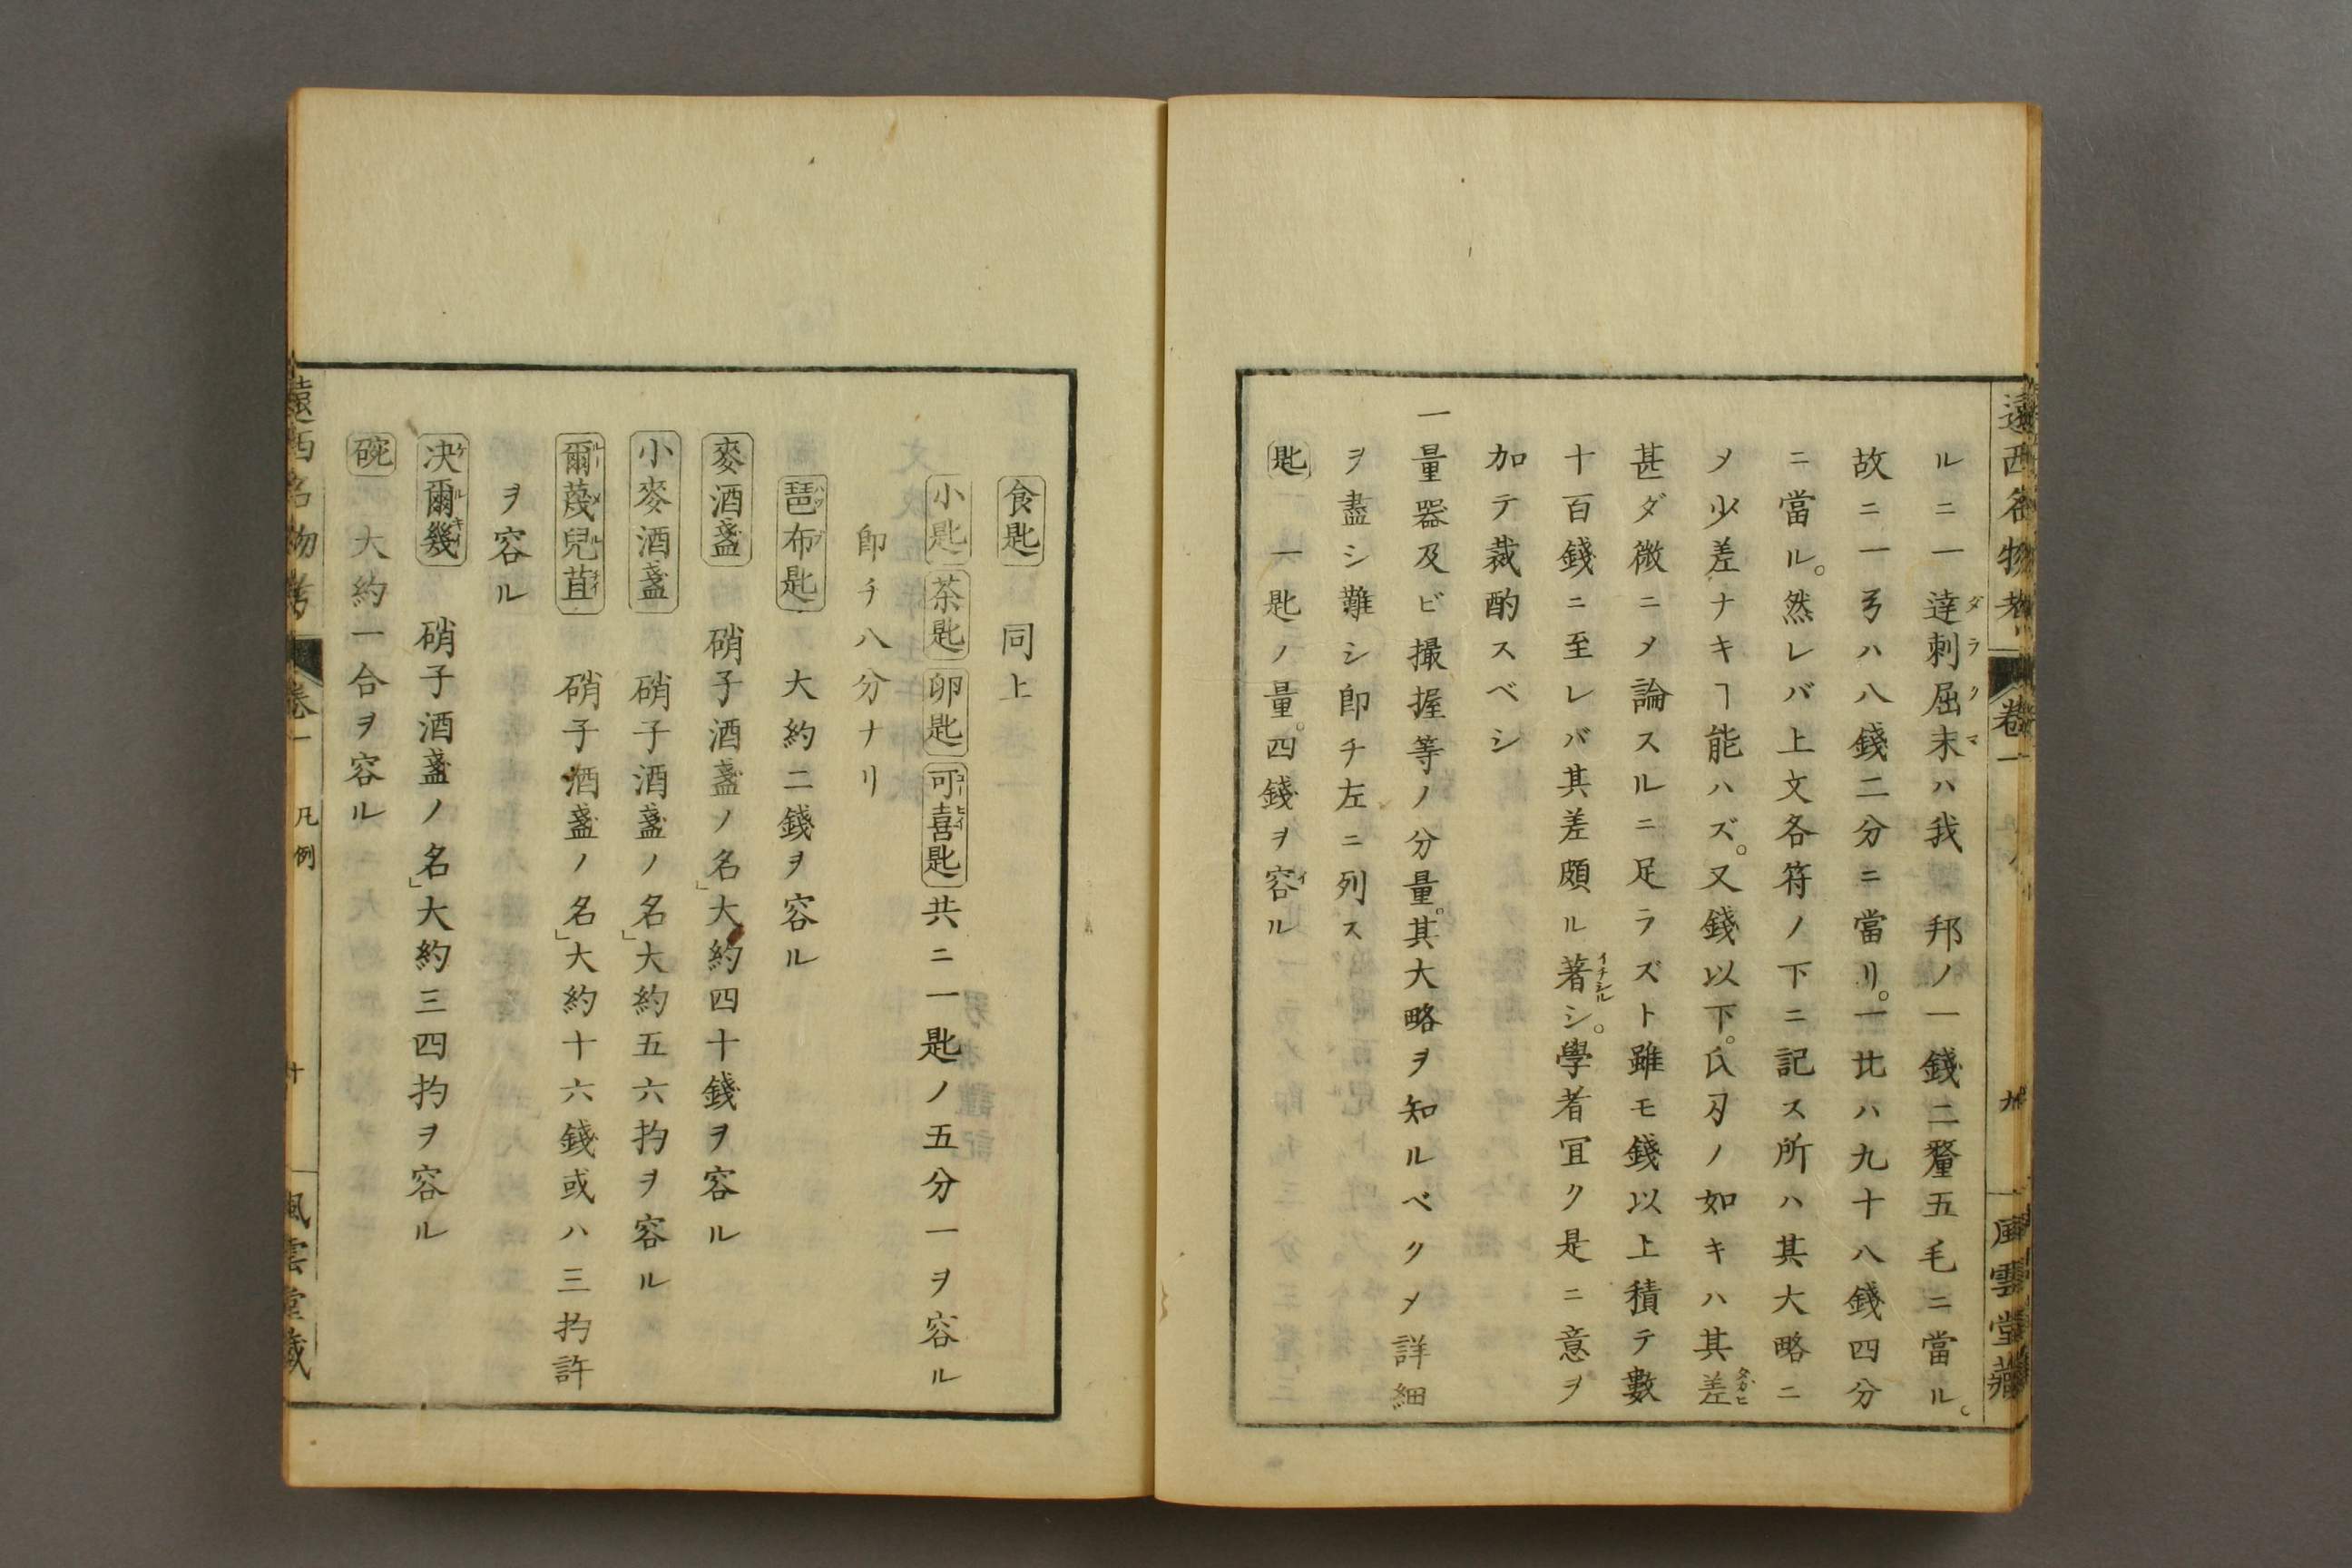 遠西名物考 卷一 九 風雲堂藏
ルニ一達刺屈末ハ我 邦ノ一錢二釐五毛ニ當ル。
故ニ一弓ハ八錢二分ニ當リ。一比ハ九十八錢四分
ニ當ル。然レバ上文各符ノ下ニ記ス所ハ其大略ニ
メ少差ナキヿ能ハズ。又錢以下。氏刄ノ如キハ其差
甚ダ微ニメ論スルニ足ラズト雖モ錢以上積テ數
十百錢ニ至レバ其差頗ル著シ。學者冝ク是ニ意ヲ
加テ裁酌スベシ
一量器及ビ撮握等ノ分量。其大略ヲ知ルベクメ詳細
ヲ盡シ難シ卽チ左ニ列ス
匙 一匙ノ量。四錢ヲ容ル
食匙 同上
小匙 茶匙 卵匙 可喜匙 共ニ一匙ノ五分一ヲ容ル
卽チ八分ナリ
琶布匙 大約二錢ヲ容ル
麥酒盞 硝子酒盞ノ名」大約四十錢ヲ容ル
小麥酒盞 硝子酒盞ノ名」大約五六扚ヲ容ル
爾蔑兒苴 硝子酒盞ノ名」大約十六錢或ハ三扚許
ヲ容ル
决爾幾 硝子酒盞ノ名」大約三四扚ヲ容ル
碗 大約一合ヲ容ル
遠西名物考 卷一 凡例 十 風雲堂藏